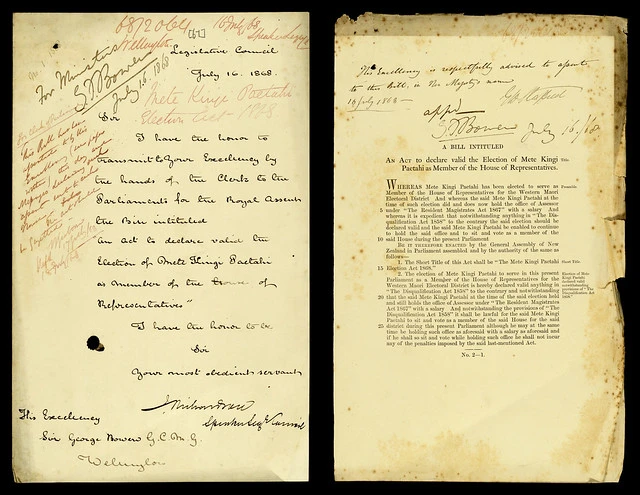 08/2064 [67] 16 July 68
Wellington
Legislative Council
July 16. 1868.
For Ministers
G.F. Bowen
July 16. 1868
Mete Kingi Paetahi
Election Act 1868
Sir
I have the honor to
transmit to Your Excellency by
the hands of the Clerk to the
Parliaments for the Royal Assent
the Bill intituled
"An Act to declare valid the
Election of Mete Kingi Paetahi
as member of the House of
Representatives"
I have the honor to be
Sir
Your most obedient servant
J Richardson
His Excellency
Sir George Bowen G.C.M.G.
Wellington
His Excellency is respectfully advised to assent
to this Bill, in Her Majesty's name
July 1868
appd
G.F. Bowen July 16./68
A BILL INTITULED
An Act to declare valid the Election of Mete Kingi Title.
Paetahi as Member of the House of Representatives.
WHEREAS Mete Kingi Paetahi has been elected to serve as Preamble.
Member of the House of Representatives for the Western Maori
Electoral District And whereas the said Mete Kingi Paetahi at the
time of such election did and does now hold the office of Assessor
5 under "The Resident Magistrates Act 1867" with a salary And
whereas it is expedient that notwithstanding anything in "The Dis-
qualification Act 1858" to the contrary the said election should be
declared valid and the said Mete Kingi Paetahi be enabled to continue
to hold the said office and to sit and vote as a member of the
10 said House during the present Parliament
BE IT THEREFORE ENACTED by the General Assembly of New
Zealand in Parliament assembled and by the authority of the same as
follows—
1. The Short Title of this Act shall be "The Mete Kingi Paetahi Short Title.
15 Election Act 1868."
2. The election of Mete Kingi Paetahi to serve in this present
Parliament as a Member of the House of Representatives for the
Western Maori Electoral District is hereby declared valid anything in
"The Disqualification Act 1858" to the contrary and notwithstanding
20 that the said Mete Kingi Paetahi at the time of the said election held
and still holds the office of Assessor under "The Resident Magistrates
Act 1867" with a salary And notwithstanding the provisions of "The
Disqualification Act 1858" it shall be lawful for the said Mete Kingi
Paetahi to sit and vote as a member of the said House for the said
25 district during this present Parliament although he may at the same
time be holding such office as aforesaid with a salary as aforesaid and
if he shall so sit and vote while holding such office he shall not incur
any of the penalties imposed by the said last-mentioned Act.
No. 2—1.